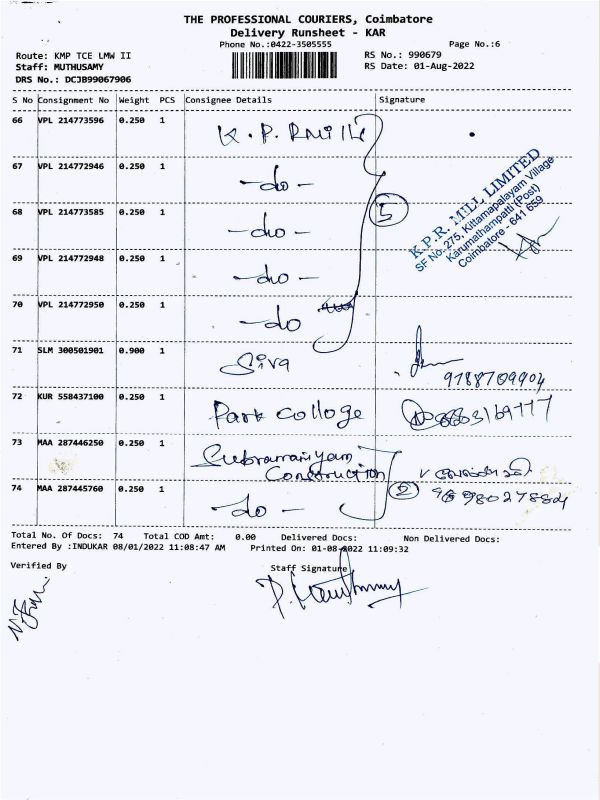 THE PROFESSIONAL COURIERS, Coimbatore
Delivery Runsheet - KAR
Phone No.:0422-3505555
Page No.:6
Route: KMP TCE LMW II
RS No.: 990679
Staff: MUTHUSAMY
RS Date: 01-Aug-2022
DRS No.: DCJB99067906
S No Consignment No Weight PCS Consignee Details Signature
66 VPL 214773596 0.250 1 K.P.R Mills
67 VPL 214772946 0.250 1 -do-
68 VPL 214773585 0.250 1 -do-
5
K.P.R. MILL LIMITED
SF No. 275, Kittampalayam Village
Karumathampatti (Post)
Coimbatore - 641 659
69 VPL 214772948 0.250 1 -do-
70 VPL 214772950 0.250 1 -do
71 SLM 300501901 0.900 1 Siva
9188709904
72 KUR 558437100 0.250 1 Park College
73 MAA 287446250 0.250 1 Subramaniyam
Construction
74 MAA 287445760 0.250 1 -do-
2
Total No. Of Docs: 74 Total COD Amt: 0.00 Delivered Docs: Non Delivered Docs:
Entered By :INDUKAR 08/01/2022 11:08:47 AM Printed On: 01-08-2022 11:09:32
Verified By
Staff Signature